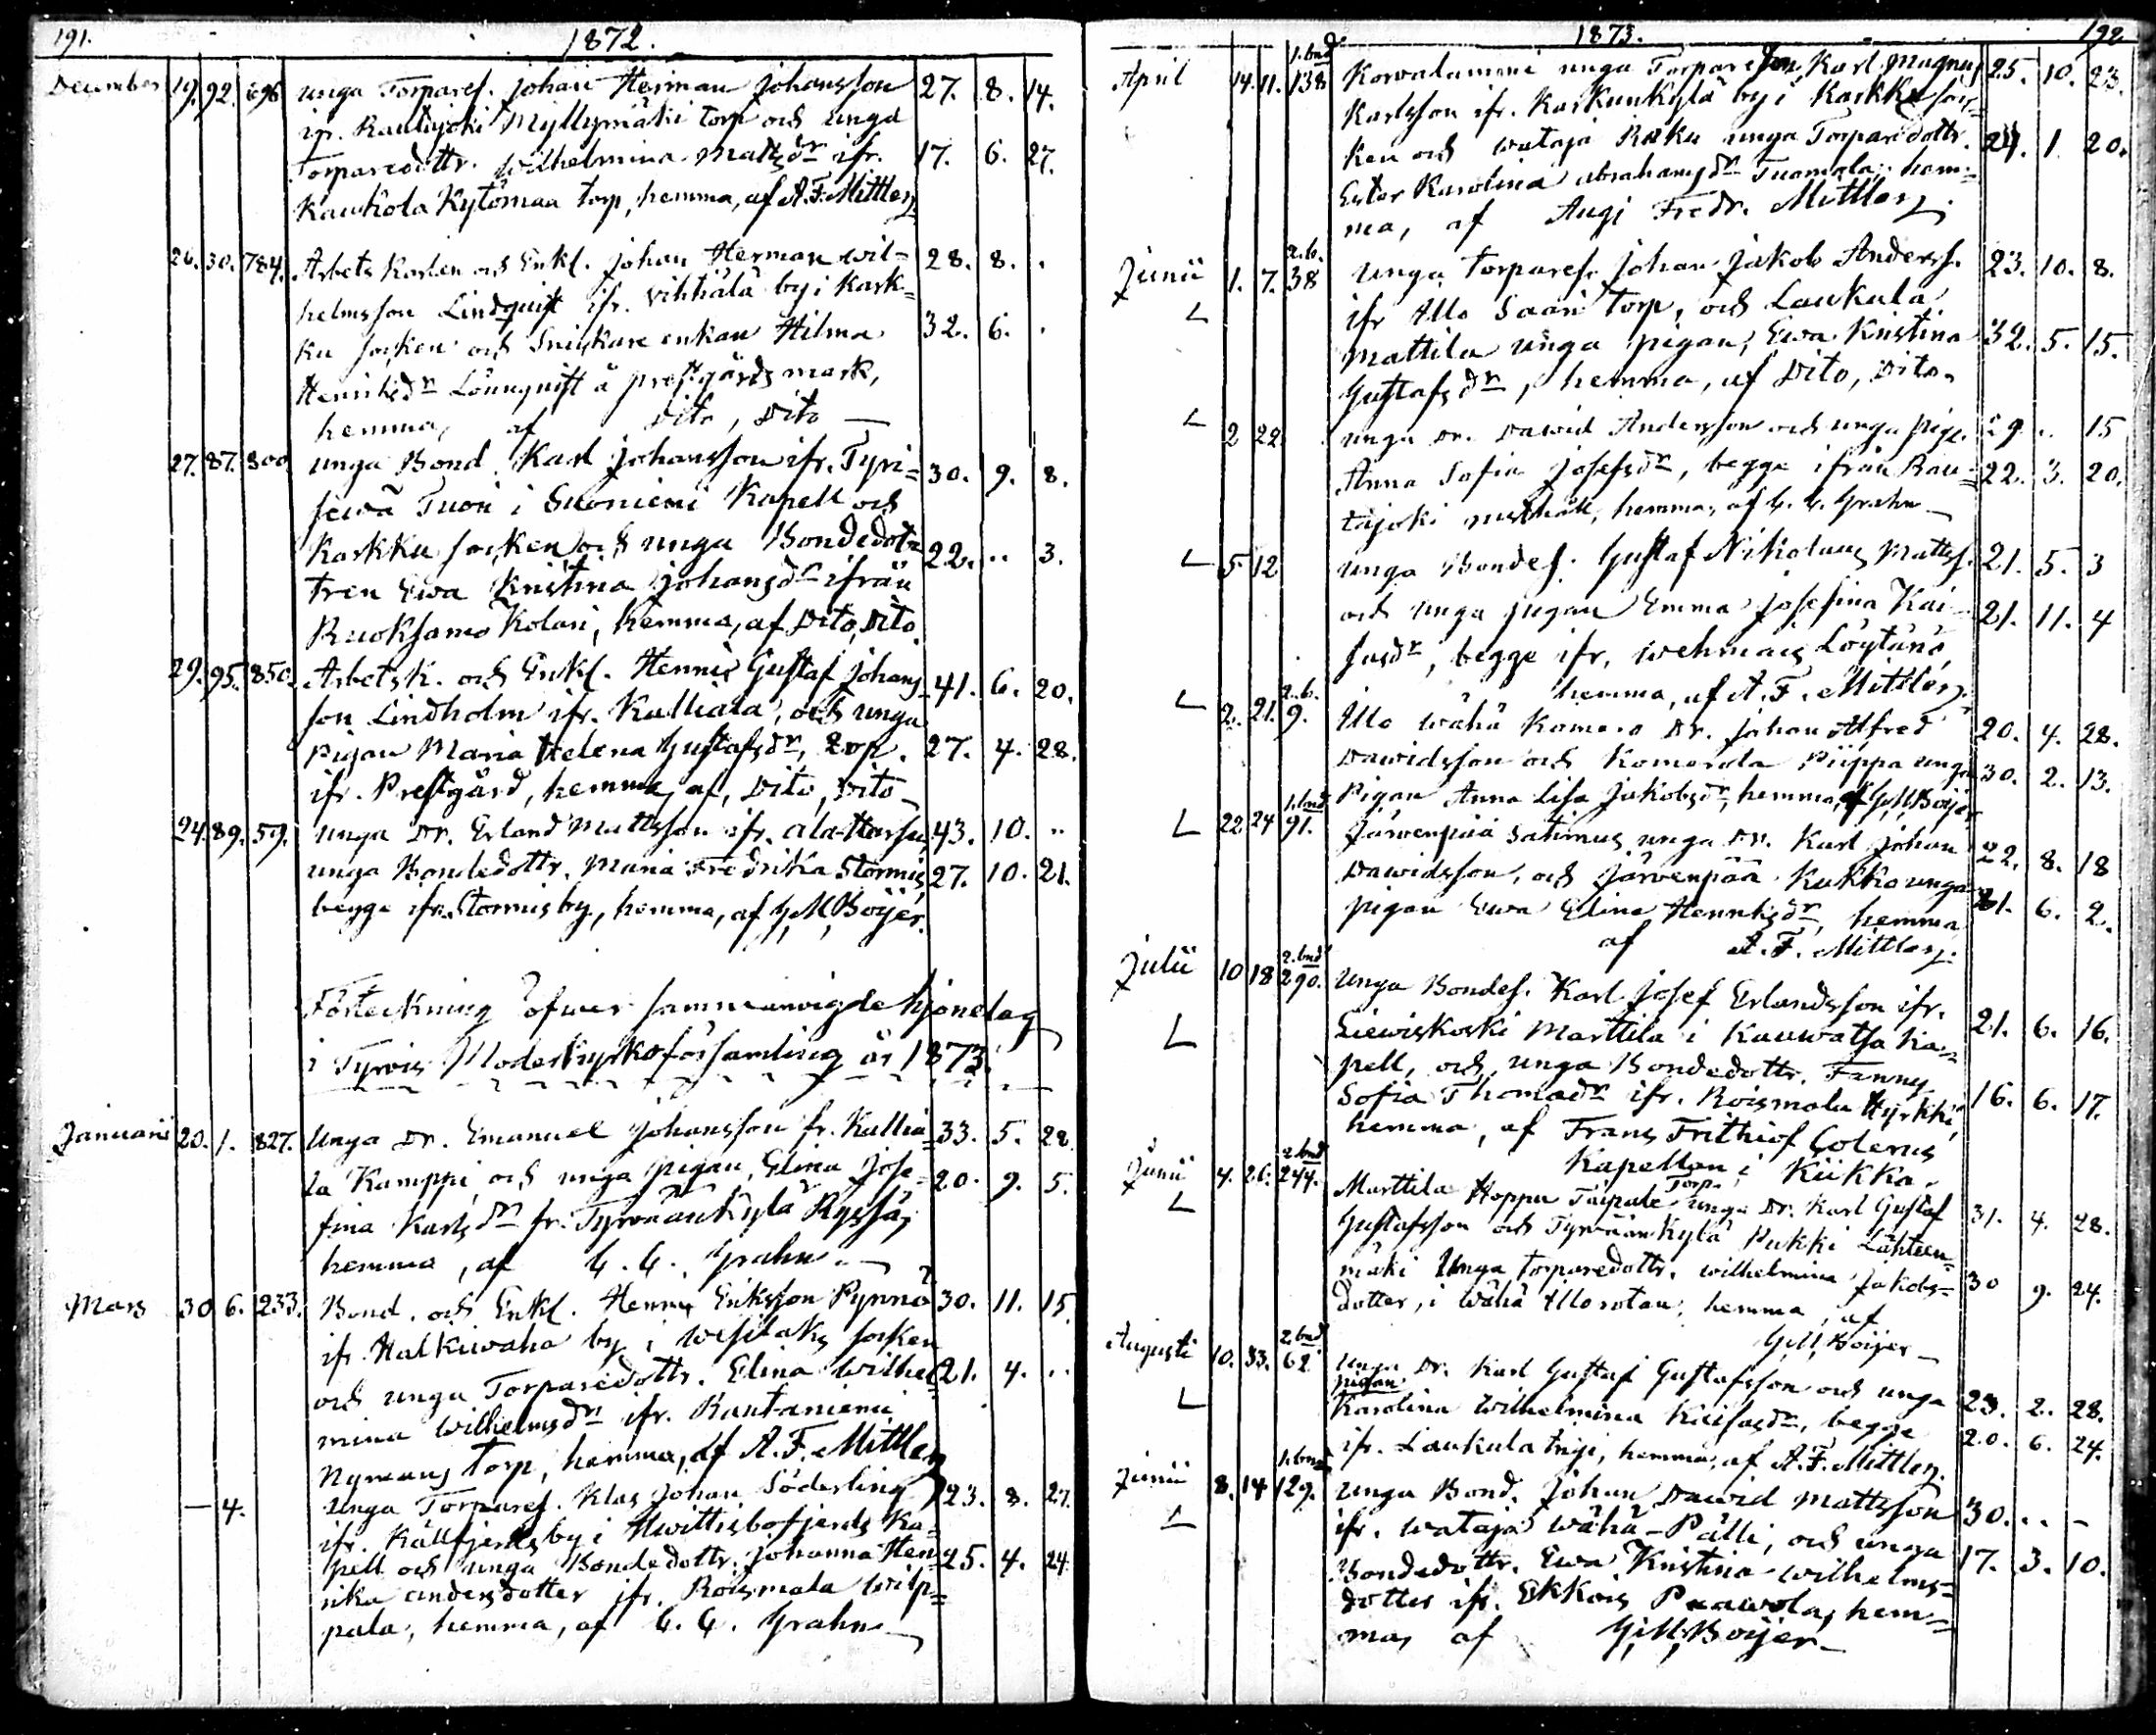 191. 1872.
December 19. 92. 696 unga Torparef. Johan Herman Johansson 27. 8. 14.
ifr. Rautajoki Myllymäki torp och unga
Torparedottr. Wilhelmina Mattsdr ifr. 17. 6. 27.
Kaukola Kytömaa torp, hemma, af A. F. Mittler
26. 30. 784. Arbets Karlen och Enkl. Johan Herman Wil= 28. 8. .
helmsson Lindquist ifr. Vihhälä by i Kark=
ku socken och Snickare enkan Hilma 32. 6. .
Henriksdr Lönnquist å prestgårds mark,
hemma, af Dito, Dito —
27. 87. 800 unga Bond. Karl Johansson ifr. Tyri= 30. 9. 8.
sewä Tuori i Suoniemi Kapell och
Karkku socken och unga Bondedot= 22. .. 3.
tren Ewa Kristina Johansdr ifrån
Ruoksamo Kolari, hemma, af Dito, Dito.
29. 95. 850. Arbetsk. och Enkl. Henric Gustaf Johans= 41. 6. 20.
son Lindholm ifr. Kalliala, och unga
pigan Maria Helena Gustafsdr, 27. 4. 28.
ifr. Prestgård, hemma, af, Dito, Dito
24. 89. 59. unga Dr. Erland Mattsson ifr. 43. 10. ..
unga Bondedottr. Maria Fredrika Stormis 27. 10. 21.
begge ifr. Stormis by, hemma, af G. M. Boijer.
Förteckning öfwer sammanwigde hjonelag
i Tyrvis Moderkyrkoförsamling år 1873.
Januarii 20. 1. 827. Unga Dr. Emanuel Johansson fr. Kallia= 33. 5. 28
la Kamppi och unga pigan, Elina Jose= 20. 9. 5.
fina Karlsdr fr. Tyrwäänkylä Ryssä,
hemma, af C. C. Grahn. —
Mars 30 6. 233. Bond. och Enkl. Henric Eriksson Pynnö 30. 11. 15.
ifr. Halkiwaha by i Wesilaks socken
och unga Torparedottr. Elina Wilhel= 21. 4. ..
mina Wilhelmsdr ifr. Rautaniemi
Nymans torp, hemma, af A. F. Mittler
— 4. Unga Torparef. Klas Johan Söderling 23. 8. 27.
ifr. Källfjerds by i Hwittisbofjerds Ka=
pell och unga Bondedottr. Johanna Hen= 25. 4. 24.
rika Andersdotter ifr. Roismala Wilp=
pala, hemma, af C. C. Grahn —
1873. 192
April 14. 11. 1.bnd 138 Korwalammi unga Torpareson, Karl Magnus 25. 10. 23.
Karlsson ifr. Karkunkylä by i Karkku soc=
ken och Wataja Raku unga Torparedottr. 24. 1. 20.
Ester Karolina Abrahamsdr Tuomola, hem=
ma, af Aug. Fredr. Mittler.
Junii 1. 7. 2.b. 38 Unga torparef. Johan Jakob Anderss. 23. 10. 8.
ifr Illo Saari torp, och Laukula
Mattila unga pigan, Ewa Kristina 32. 5. 15.
Gustafsdr, hemma, af Dito, Dito.
2 22 unga Dr. Dawid Andersson och unga pig. 29 .. 15
Anna Sofia Josefsdr, begge ifrån Rau= 22. 3. 20.
tajoki rusthåll, hemma, af C. C. Grahn —
5 12 unga Bondef. Gustaf Nikolaus Mattss. 21. 5. 3
och unga pigan Emma Josefina Kai= 21. 11. 4
sasdr, begge ifr. Wehmais Löytänä,
hemma, af A. F. Mittler.
2. 21. 2.b. 9. Illo Wähä Komero Dr. Johan Alfred 20. 4. 28.
Dawidsson och Komerola Piippa unga 30. 2. 13.
Pigan Anna Lisa Jakobsdr, hemma, af G. M. Boijer.
22 24 1.bnd 91. Järwenpää Satimus unga Dr. Karl Johan 22. 8. 18
Dawidsson, och Järwenpää Kukko unga
pigan Ewa Elina Henriksdr, hemma 21. 6. 2.
af A. F. Mittler.
Julii 10 18 2.bnd 290. Unga Bondef. Karl Josef Erlandsson ifr.
Liewiskoski Marttila i Kauwatsa Ka= 21. 6. 16.
pell, och unga Bondedottr. Fanny
Sofia Thomasdr ifr. Roismala Hyrkki, 16. 6. 17.
hemma, af Frans Frithiof Colerus
Kapellan i Kiikka.
Junii 4. 26. 2.bnd 244. Marttila Hoppu Taipale Torp. unga Dr. Karl Gustaf 31. 4. 28.
Gustafsson och Tyrwäänkylä Pukki Lähteen=
mäki Unga torparedottr. Wilhelmina Jakobs= 30 9. 24.
dotter, i Wähä Illo rotan, hemma, af
G. M. Boijer —
Augusti 10. 33. 2.bnd 62 Unga Dr. Karl Gustaf Gustafsson och unga
pigan Karolina Wilhelmina Kaisasdr, begge 23. 2. 28.
ifr. Laukula Friji, hemma, af A. F. Mittler. 20. 6. 24.
Junii 8. 14 1.bnd 129. Unga Bond. Johan Dawid Mattsson 30. .. -
ifr. Wataja Wähä-Pälli, och unga
Bondedottr. Ewa Kristina Wilhelms= 17. 3. 10.
dotter ifr. Ekkois Paawola, hem=
ma, af G. M. Boijer —